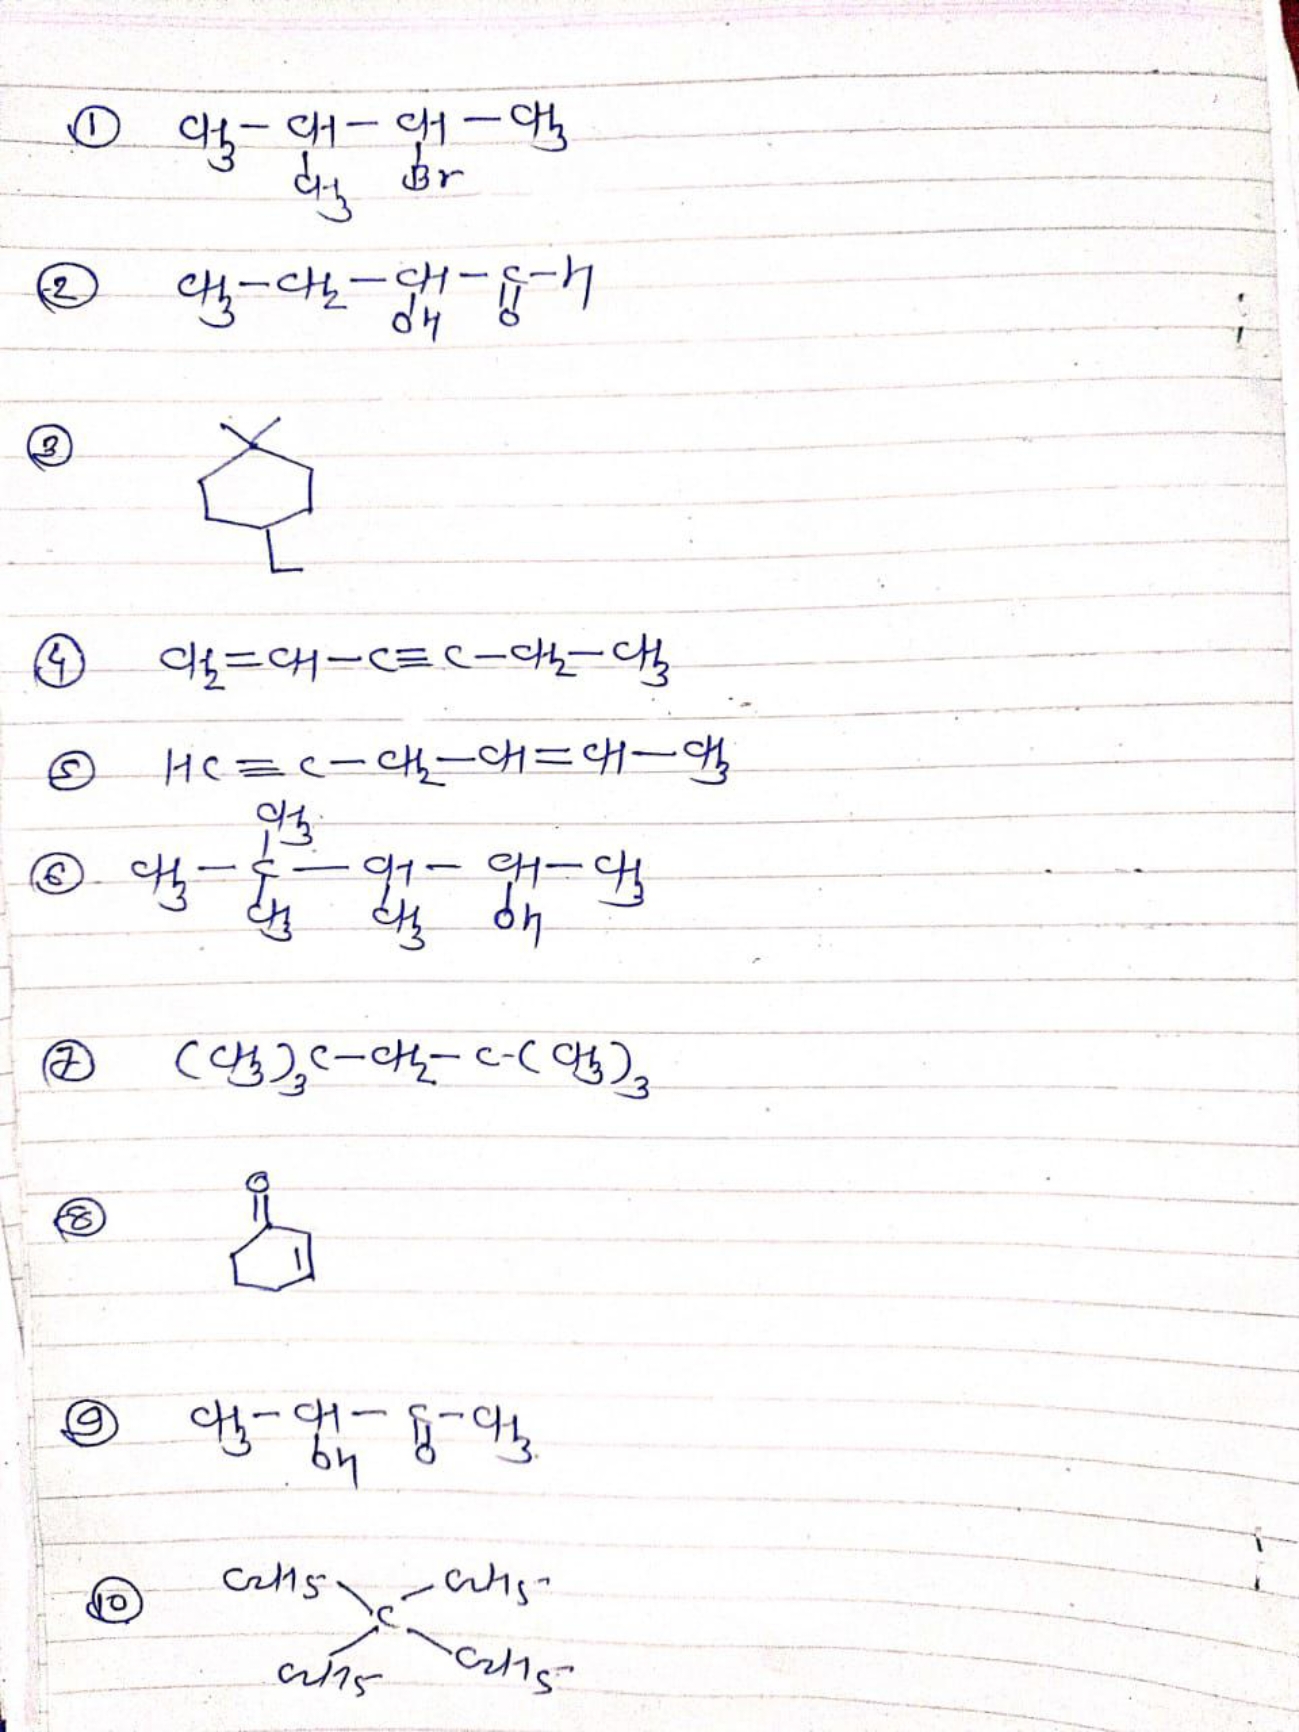 ① CH3 – CH – CH – CH3
CH3 Br
② CH3 – CH2 – CH – C – H
OH O
③
④ CH2 = CH – C ≡ C – CH2 – CH3
⑤ HC ≡ C – CH2 – CH = CH – CH3
CH3
⑥ CH3 – C – CH – CH – CH3
CH3 CH3 OH
⑦ (CH3)3 C – CH2 – C-(CH3)3
O
⑧
⑨ CH3 – CH – C – CH3
OH O
C2H5 C2H5
⑩ C
C2H5 C2H5